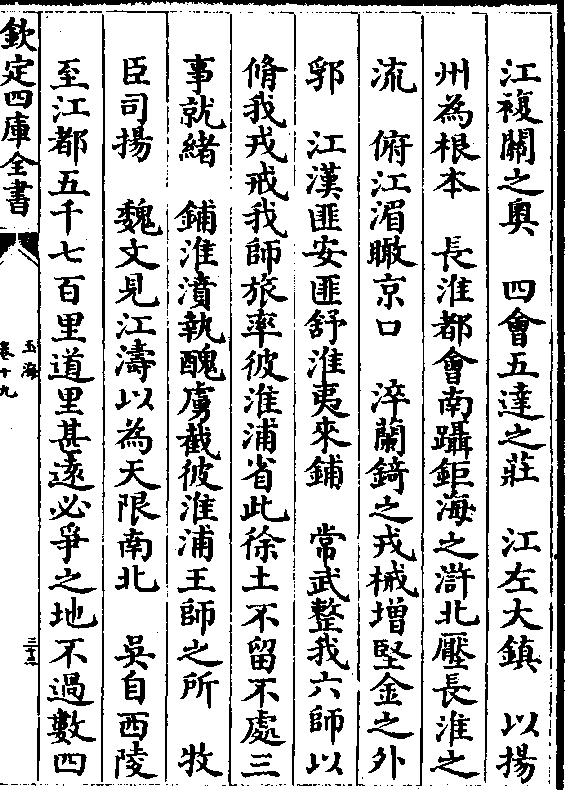 江複關之奧　四會五達之莊　江左大鎮　以揚
州為根本　長淮都會南躡鉅海之滸北壓長淮之
流　俯江湄瞰京口　淬蘭錡之戎械增堅金之外
郛　江漢匪安匪舒淮夷來鋪　常武整我六師以
脩我戎戒我師旅率彼淮浦省此徐土不留不處三
事就緒　鋪淮濆執醜虜截彼淮浦王師之所　牧
臣司揚　魏文見江濤以為天限南北　吳自西陵
至江都五千七百里道里甚逺必爭之地不過數四
欽定四庫全書
玉海
卷十九